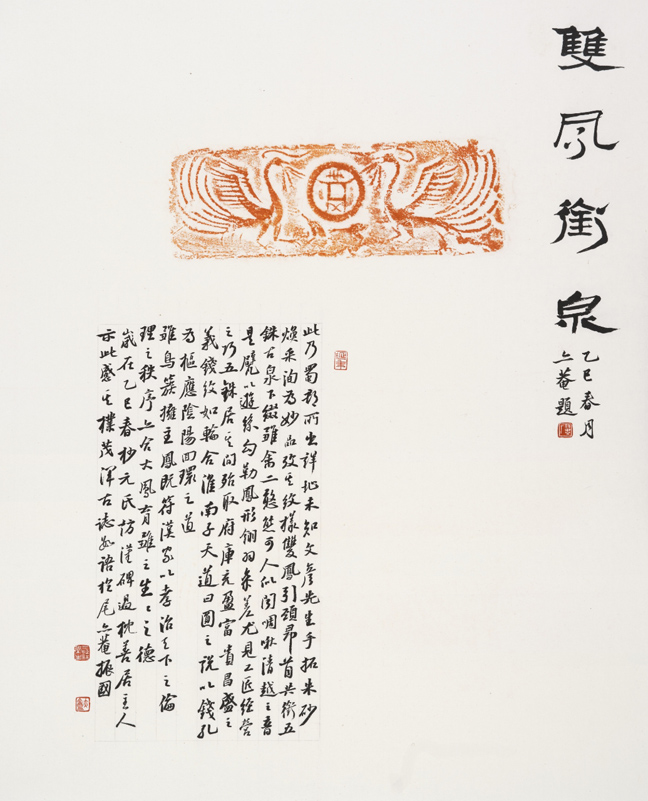 雙鳳銜泉
乙巳春月
亦菴題
此乃蜀郡所出詳址未知文彥先生手拓朱砂
煥采洵為妙品攷其紋樣雙鳳引頸昂首共銜五
銖古泉下綴雛禽二憨態可人似聞啁啾清越之音
是甓以遊絲勾勒鳳形翎羽參差尤見工匠經營
之巧五銖居其間殆取府庫充盈富貴昌盛之
義錢紋如輪合淮南子天道曰圓之說以錢孔
為樞應陰陽回環之道
雛鳥簇擁主鳳既符漢家以孝治天下之倫
理之秩序亦合大鳳育雛之生生之德
歲在乙巳春杪元氏訪漢碑過枕善居主人
示此感其樸茂渾古誌數語於尾亦菴振國